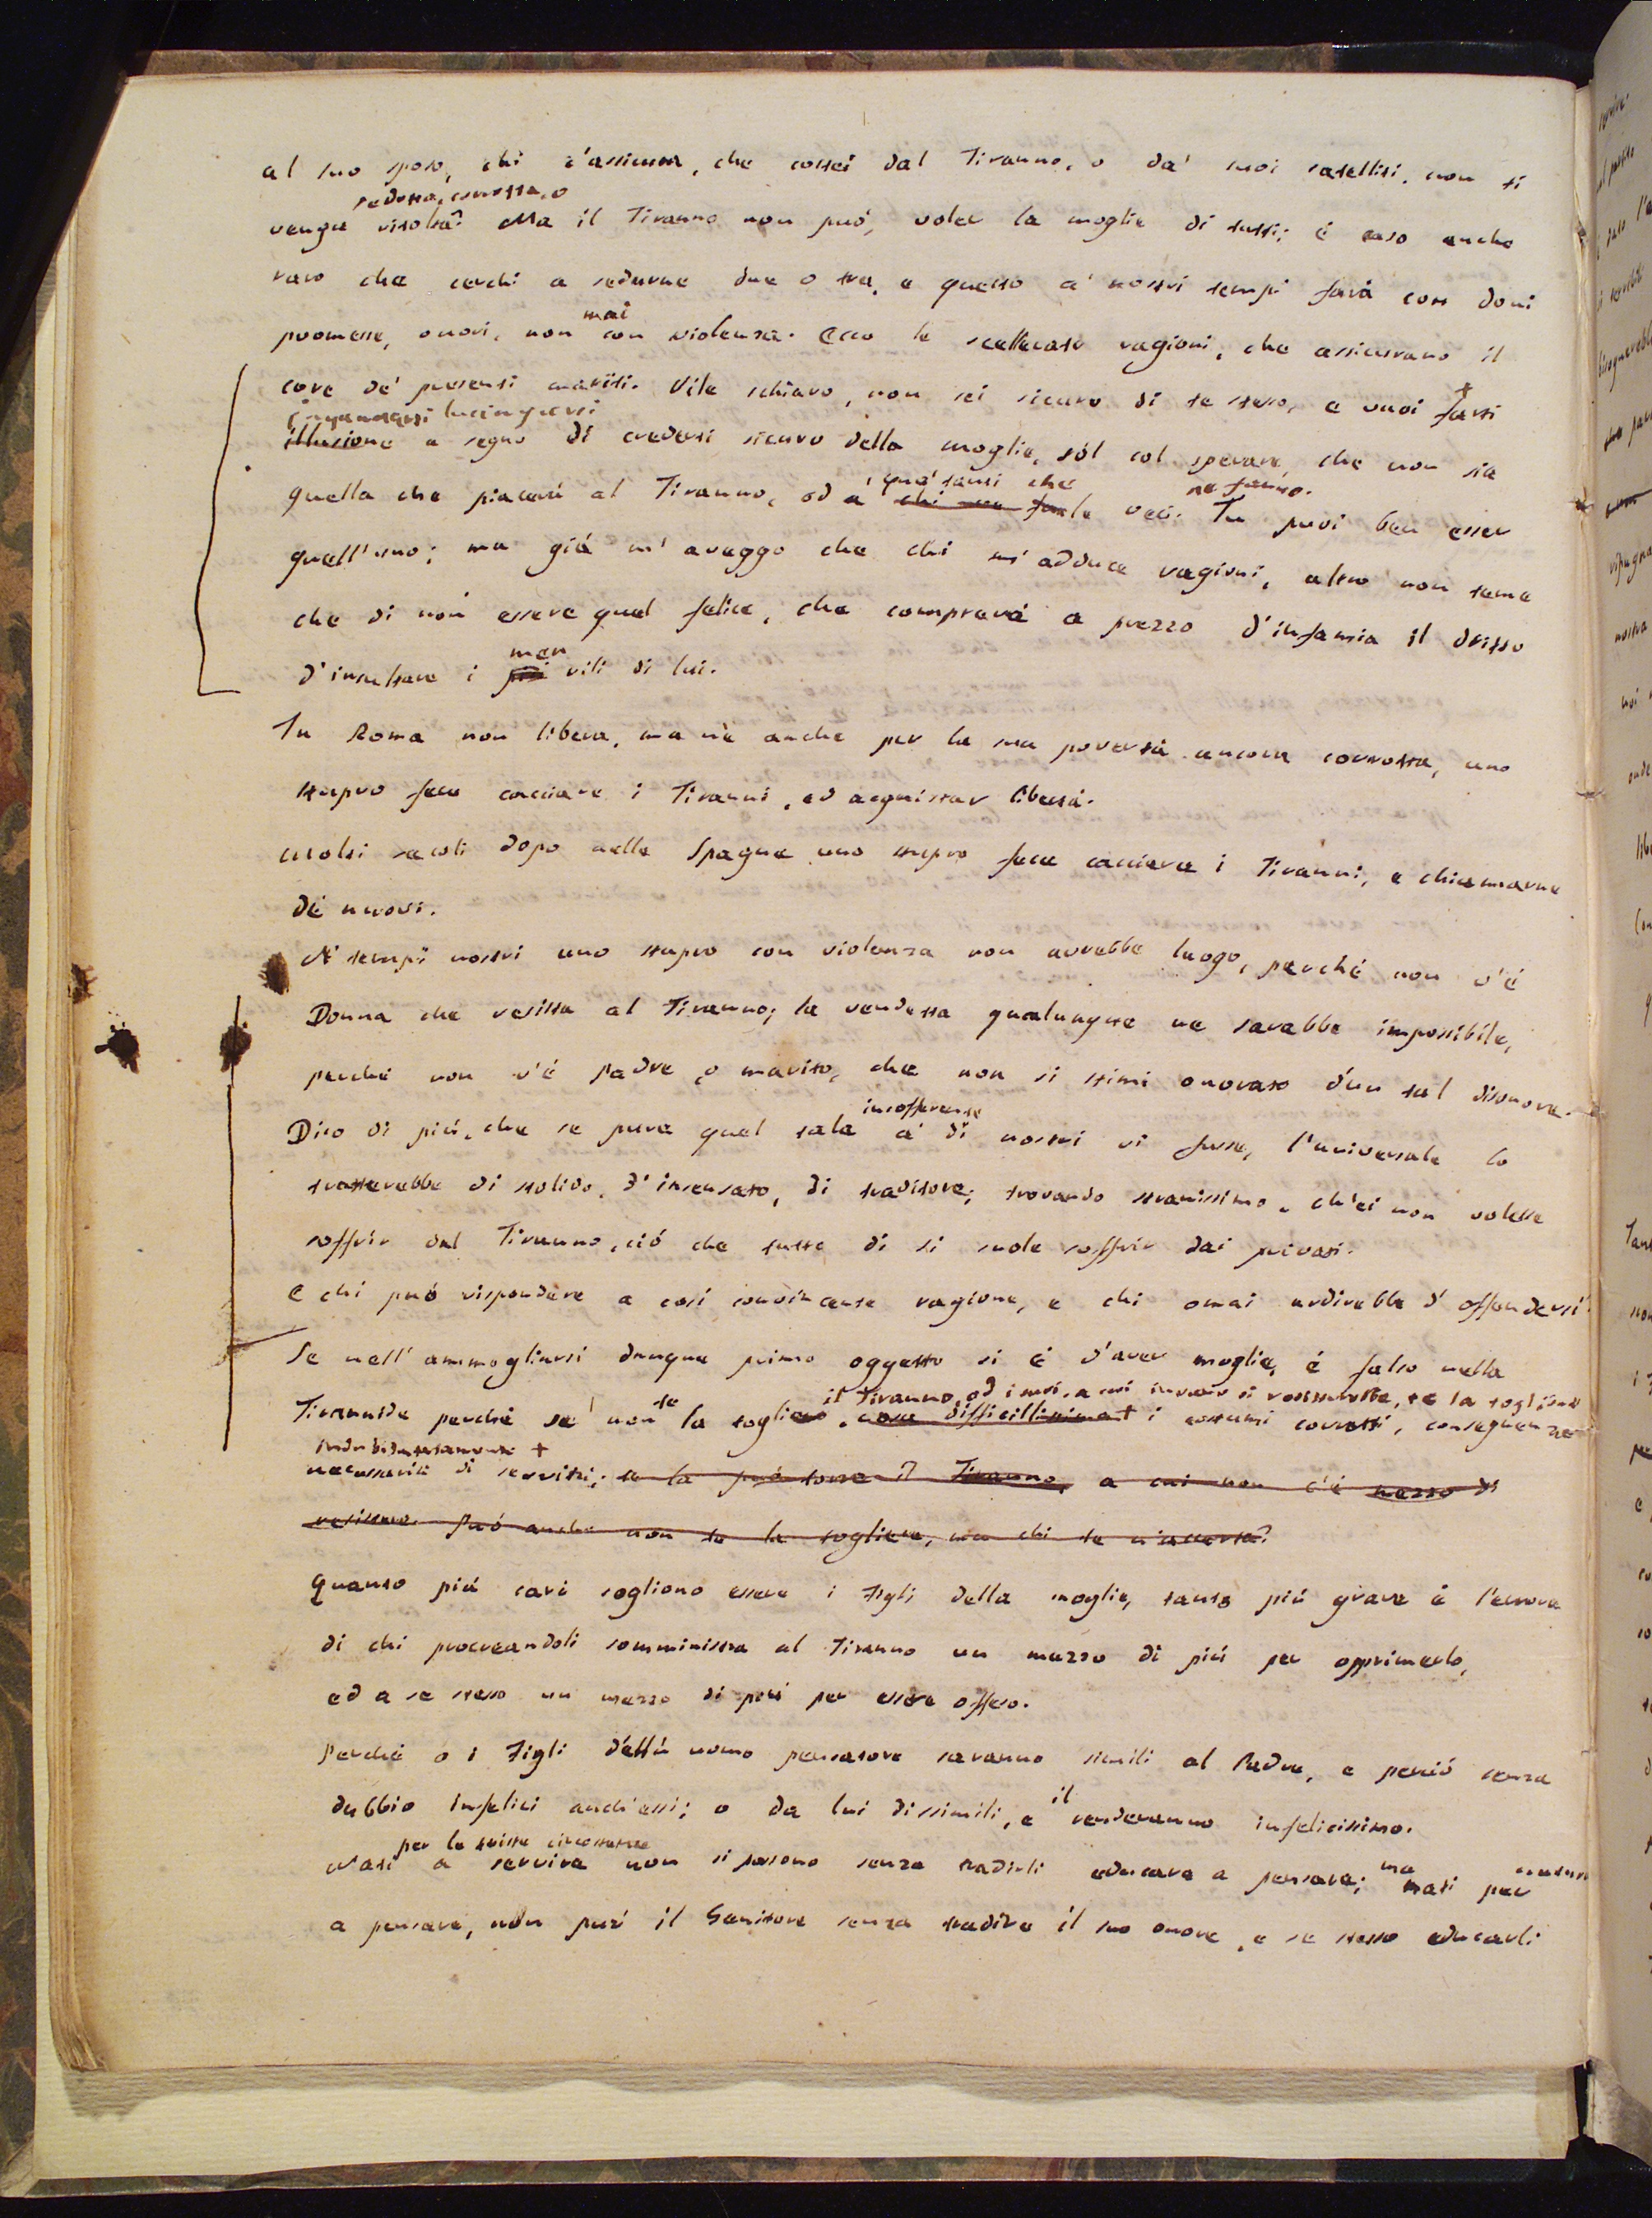 al suo sposo, chi c'assicura, che costei dal Tiranno, o da' suoi satelliti, non ti
sedotta, corrotta, o
venga ritolta? Ma il Tiranno non può, voler la moglie di tutti; è caso anche
raro che cerchi a sedurne due o tre, e questo a' nostri tempi farà con doni
mai
promesse, onori, non con violenza. Ecco le scellerate ragioni, che assicurano il
core de' presenti mariti. Vile schiavo, non sei sicuro di te stesso, e vuoi farti
ingannarsi lusingarsi
illusione a segno di crederti sicuro della moglie, sol col sperare, che non sia
qua' tanti che ne fanno.
quella che piacerà al Tiranno, od a' chi ne fa le veci. Tu puoi ben esser
quell'uno; ma già m'aveggo che chi m'adduce ragioni, altro non teme
che di non essere quel felice, che comprerà a prezzo d'infamia il dritto
men
d'insultare i più vili di lui.
In Roma non libera, ma nè anche per la sua povertà ancora corrotta, uno
stupro fece cacciare i Tiranni, ed acquistar libertà.
Molti secoli dopo nelle Spagne uno stupro fece cacciare i Tiranni, e chiamarne
de' nuovi.
A' tempi nostri uno stupro con violenza non avrebbe luogo, perchè non v'è
Donna che resista al Tiranno; la vendetta qualunque ne sarebbe impossibile,
perchè non v'è padre, o marito, che non si stimi onorato d'un tal disonore.
insofferente
Dico di più, che se pure quel tale a' dì nostri vi fosse, l'universale lo
tratterebbe di stolido, d'insensato, di traditore; trovando stranissimo, ch'ei non volesse
soffrir dal Tiranno, ciò che tutto dì si suole soffrir dai privati.
E chi può rispondere a così convincente ragione, e chi omai ardirebbe d'offendersi?
Se nell'ammogliarsi dunque primo oggetto si è d'aver moglie, è falso nella
te il Tiranno, od i suoi, a cui invano si resisterebbe, te la togliono
Tirannide perchè se non la togliere, cosa difficillima + i costumi corrotti, conseguenze
indubitatamente +
necessarie di servitù; te la può torre il Tiranno, a cui non c'è mezzo di
resistere. Può anche non te la togliere, ma chi te n'accerta?
Quanto più cari sogliono essere i Figli della moglie, tanto più grave è l'errore
di chi procreandoli somministra al Tiranno un mezzo di più per opprimerlo,
ed a se stesso un mezzo di più per essere offeso.
Perchè o i Figli dell'uomo pensatore saranno simili al Padre, e perciò senza
il
dubbio infelici anch'essi; o da lui dissimili, e renderanno infelicissimo.
per le triste circostanze
Nati a servire non si possono senza tradirli educare a pensare; ma nati per natura
a pensare, non può il Genitore senza tradire il suo onore, e se stesso educarli